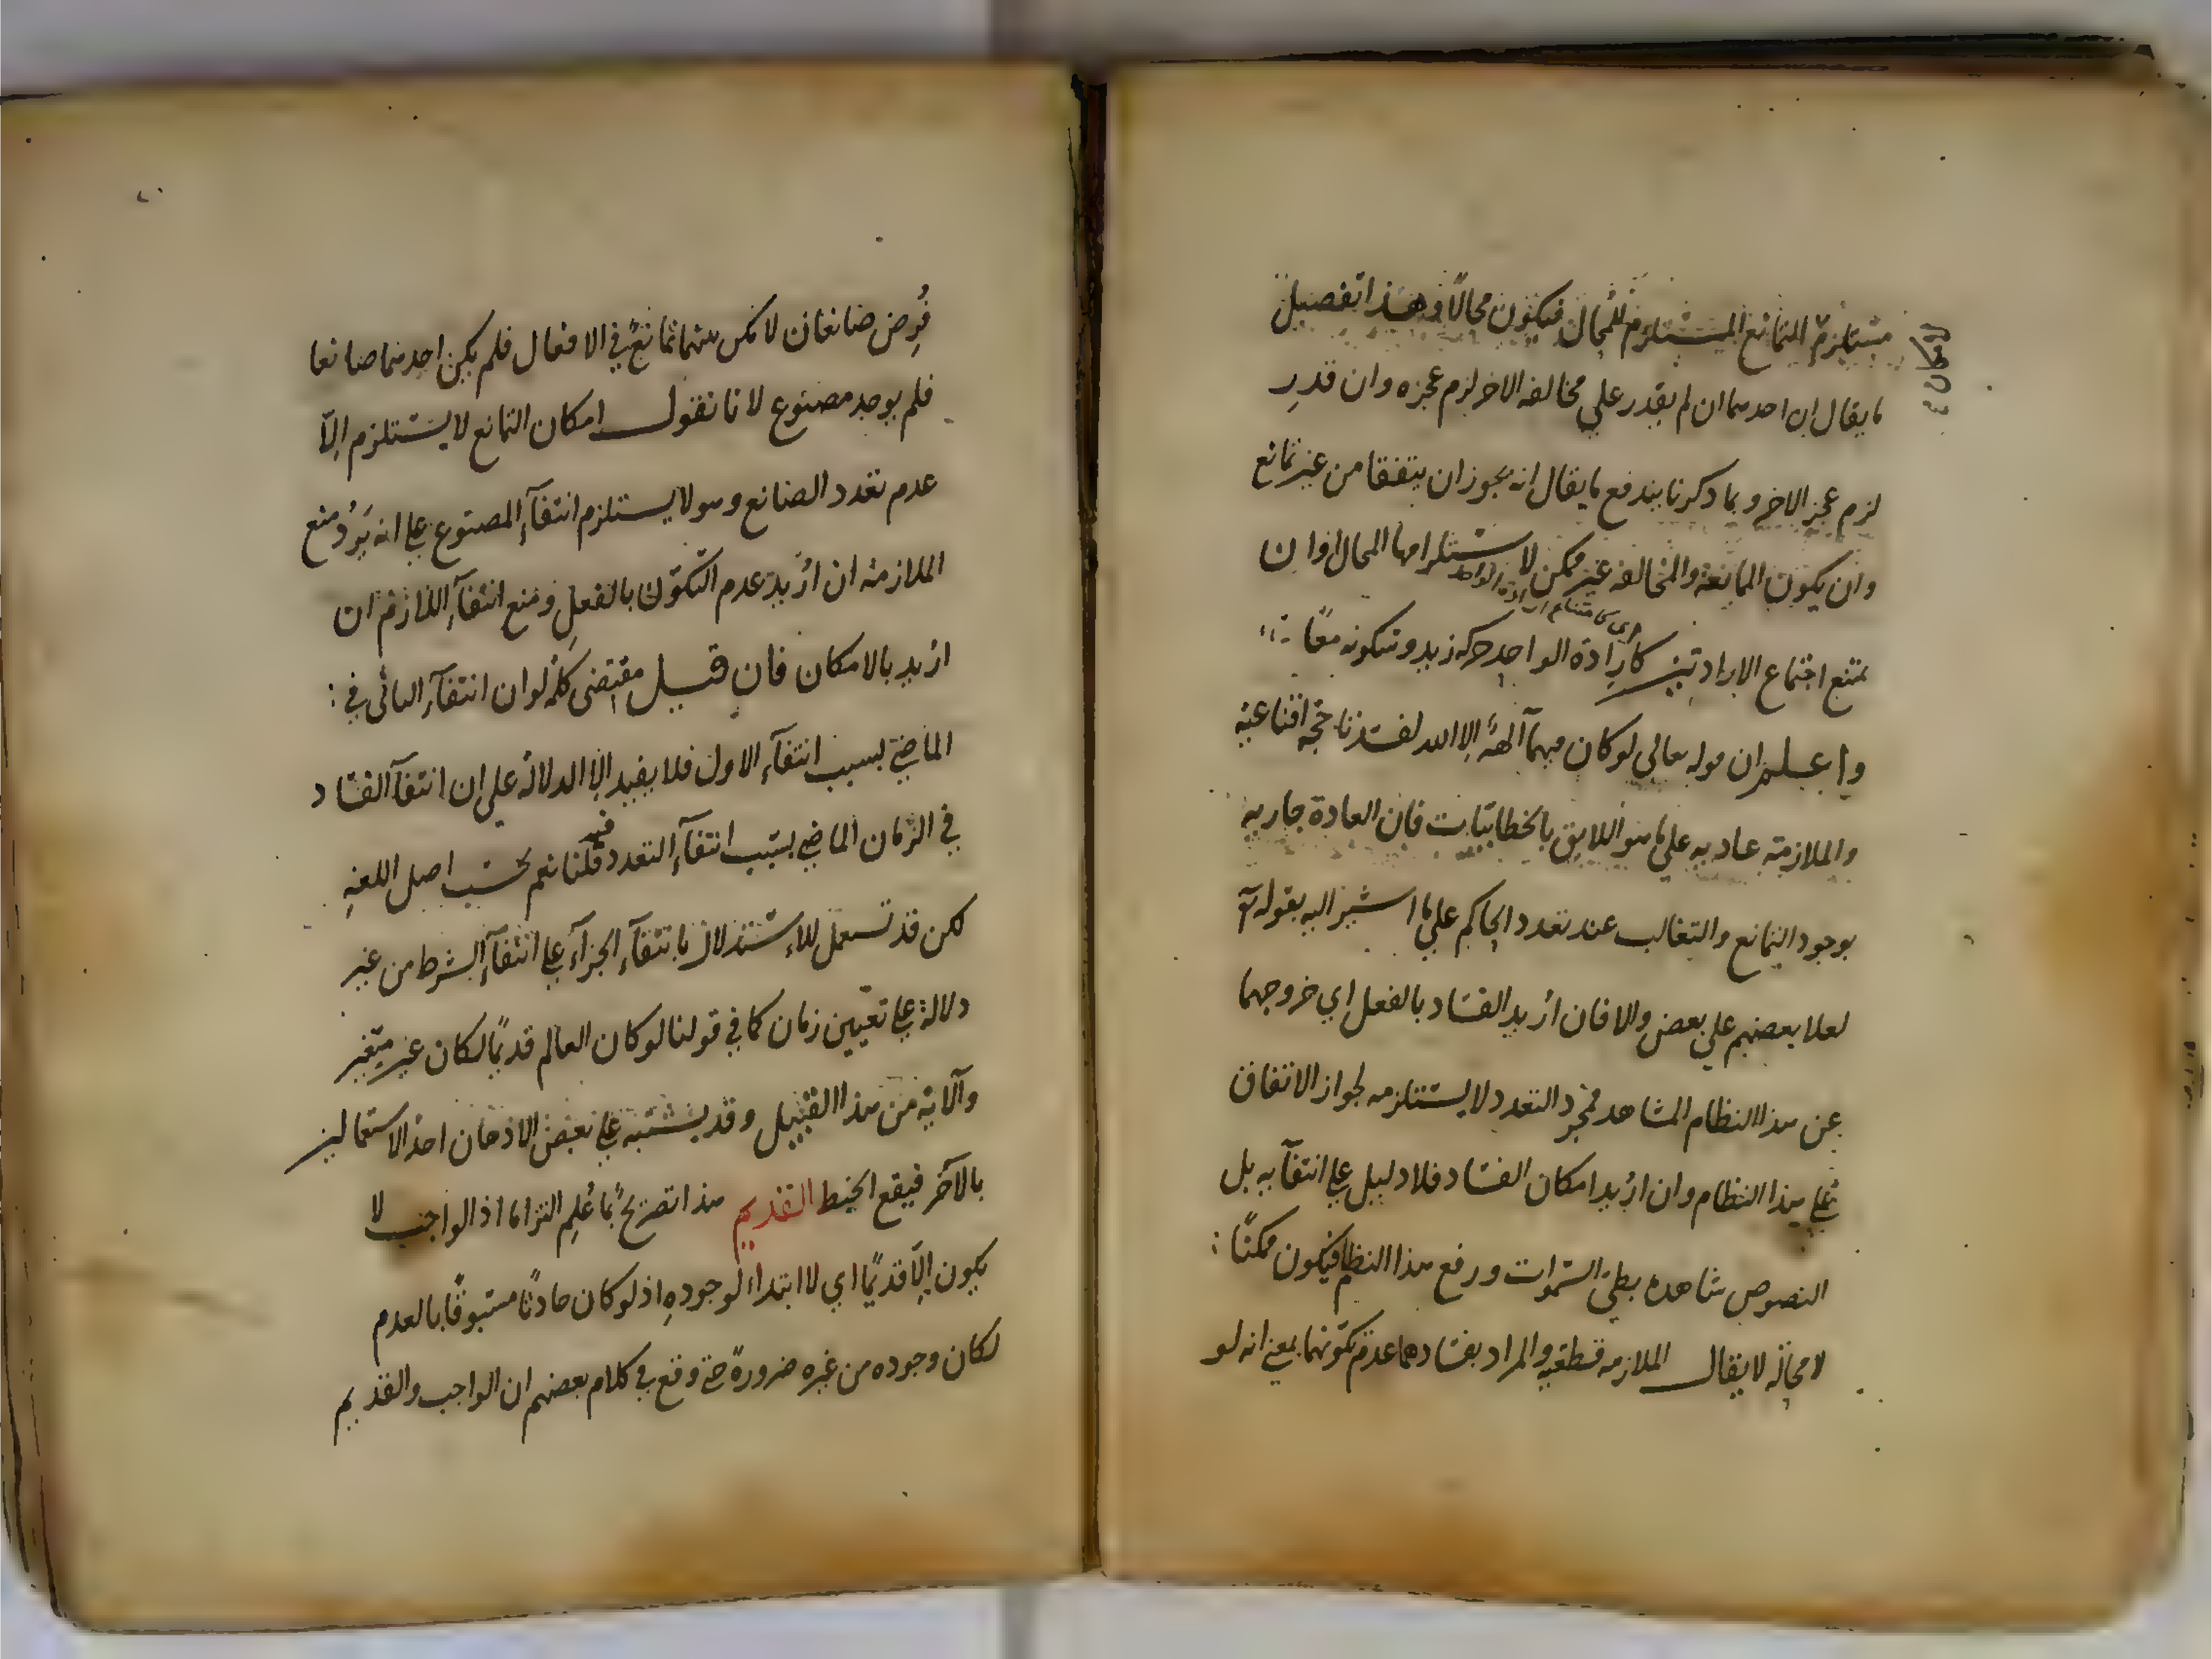 مستلزم التمانع المستلزم للمحال فيكون محالا وهذا تفصيل
لامكان
ما يقال ان احدهما ان لم يقدر علي مخالفه الاخر لزم عجزه وان قدر
لزم عجز الاخر وبما ذكرنا يندفع ما يقال انه يجوز ان يتفقا من غير تمانع
وان يكون الممانعة والمخالفه غير ممكن لاستلزامها المحال او ان
يمتنع اجتماع الارادتين كارادة الواحد حركه زيد وسكونه معًا
واعلم ان قوله تعالي لو كان فيهما آلهة الا الله لفسدتا حجه اقناعيه
والملازمة عاديه علي ما هو اللايق بالخطابيات فان العادة جاريه
بوجود التمانع والتغالب عند تعدد الحاكم علي ما اشير اليه بقوله تع
لعلا بعضهم علي بعض والا فان اريد الفساد بالفعل اي خروجهما
عن هذا النظام المشاهد فمجرد التعدد لا يستلزمه لجواز الاتفاق
علي هذا النظام وان اريد امكان الفساد فلا دليل علي انتفآيه بل
النصوص شاهده بطي السموات ورفع هذا النظام فيكون ممكنًا
لا محاله لا يقال الملازمه قطعيه والمراد بفسادهما عدم تكونهما بمعني انه لو
فُرِض صانعان لامكن بينهما تمانع في الافعال فلم يكن احدهما صانعا
فلم يوجد مصنوع لانا نقول امكان التمانع لا يستلزم الّا
عدم تعدد الصانع وهو لا يستلزم انتفآء المصنوع علي انه يَرِدُ منع
الملازمة ان اُريد عدم التكوّن بالفعل ومنع انتفآء اللازم ان
اريد بالامكان فان قيل مقتضى كلمة لو ان انتفآء الثاني في
الماضي بسبب انتفآء الاول فلا يفيد الا الدلالة علي ان انتفآ الفساد
في الزمان الماضي بسبب انتفآء التعدد قلنا نعم بحسب اصل اللغه
لكن قد تستعمل للاستدلال بانتفآء الجزآء علي انتفآء الشرط من غير
دلالة علي تعيين زمان كما في قولنا لو كان العالم قديمًا لكان غير متغير
والآية من هذا القبيل وقد يشتبه علي بعض الاذهان احد الاستعمالين
بالآخر فيقع الخبط القديم هذا تصريح بما عُلِم التزاما اذ الواجب لا
يكون الّا قديمًا اي لا ابتداء لوجودهِ اذ لو كان حادثًا مسبوقًا بالعدم
لكان وجوده من غيره ضرورةً حتي وقع في كلام بعضهم ان الواجب والقديم